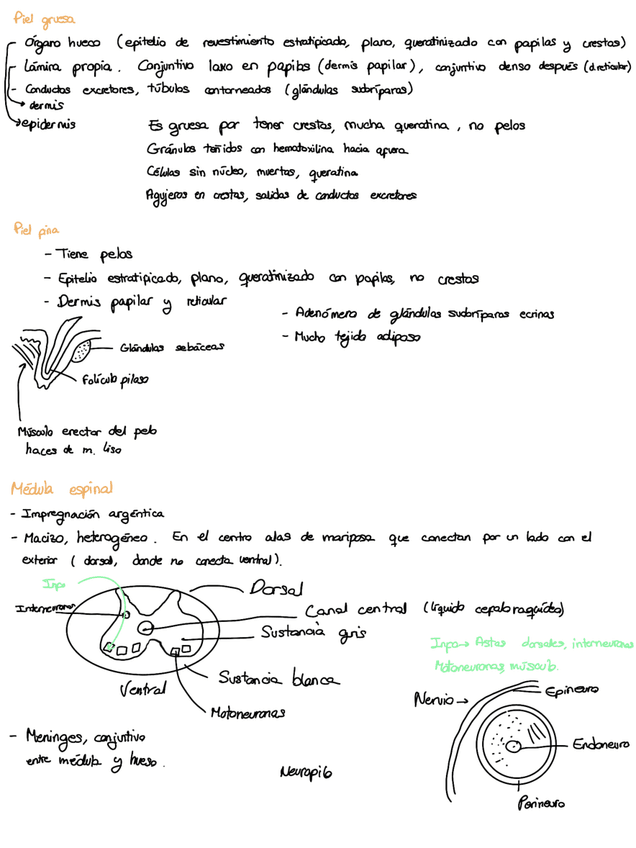 Piel gruesa
- Órgano hueco (epitelio de revestimiento estratipicado, plano, queratinizado con papilas y crestas)
- Lámina propia. Conjuntivo laxo en papilas (dermis papilar), conjuntivo denso después (d.reticular)
- Conductos excretores, túbulos contorneados (glándulas sudoríparas)
dermis
epidermis
Es gruesa por tener crestas, mucha queratina, no pelos
Gránulos teñidos con hematoxilina hacia afuera
Células sin núcleo, muertas, queratina
Agujeros en crestas, salidas de conductos excretores
Piel pina
- Tiene pelos
- Epitelio estratipicado, plano, queratinizado con papilas, no crestas
- Dermis papilar y reticular
- Adenómero de glándulas sudoríparas ecrinas
- Mucho tejido adiposo
Glándulas sebáceas
Folículo piloso
Músculo erector del pelo
haces de m. liso
Médula espinal
- Impregnación argéntica
- Macizo, heterogéneo. En el centro alas de mariposa que conectan por un lado con el
exterior (dorsal, donde no conecta ventral).
Inpo
Dorsal
Interneuronas
Canal central (líquido cepalo raquídeo)
Sustancia gris
Inpo → Astas dorsales, interneuronas
Motoneuronas, músculo.
Sustancia blanca
Ventral
Motoneuronas
Nervio →
Epineuro
Endoneuro
Perineuro
- Meninges, conjuntivo
entre médula y hueso.
Neuropilo